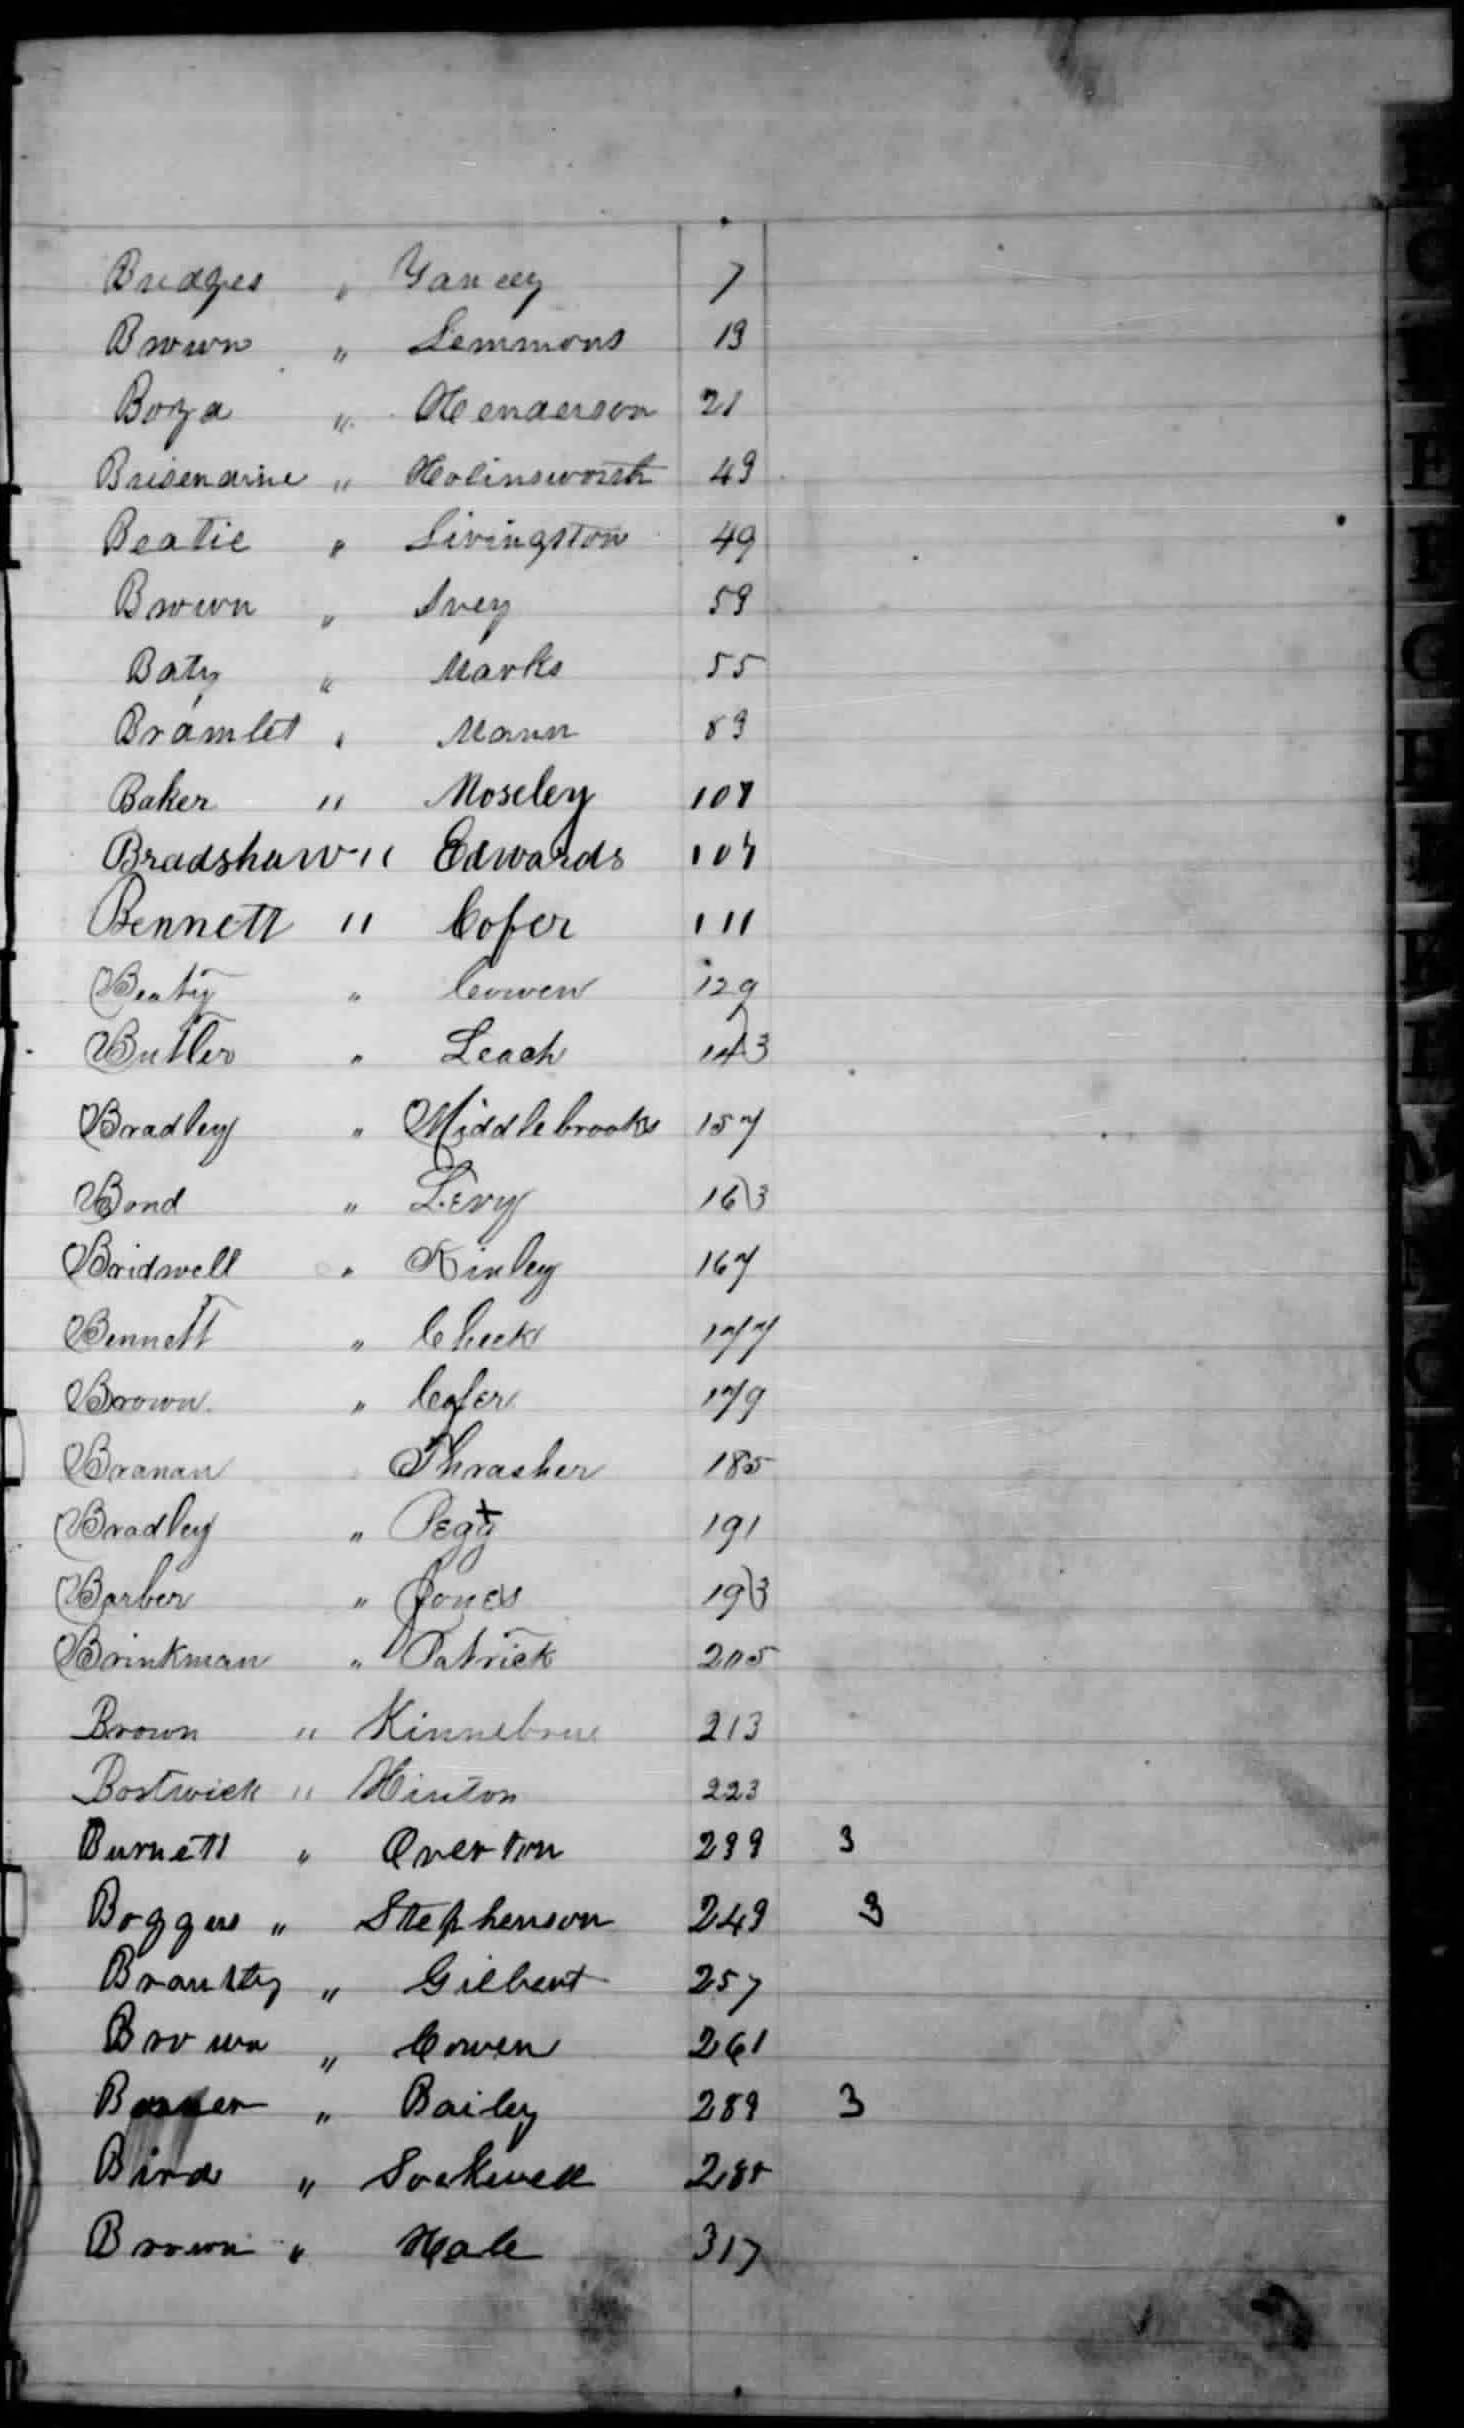 Bridges " Yancey 7
Brown " Lemmons 13
Boyd " Henderson 21
Brisendine " Holinsworth 43
Beatie " Livingston 49
Brown " Ivey 53
Baty " Marks 55
Bramlet " Mann 83
Baker " Moseley 107
Bradshaw " Edwards 107
Bennett " Cofer 111
Beaty " Cowen 129
Butler " Leach 143
Bradley " Middlebrooks 157
Bond " Levy 163
Bridwell " Kinley 167
Bennett " Cheek 177
Brown " Cofer 179
Branan Thrasher 185
Bradley " Pegg 191
Barber " Jones 193
Brinkman " Patrick 205
Brown " Kinnebrue 213
Bostwick " Hinton 223
Burnett " Overton 239 3
Boggus " Stephenson 249 3
Brantly " Gilbert 257
Brown " Cowen 261
" Bailey 289 3
Bird " Sockwell
Brown " Hale 317